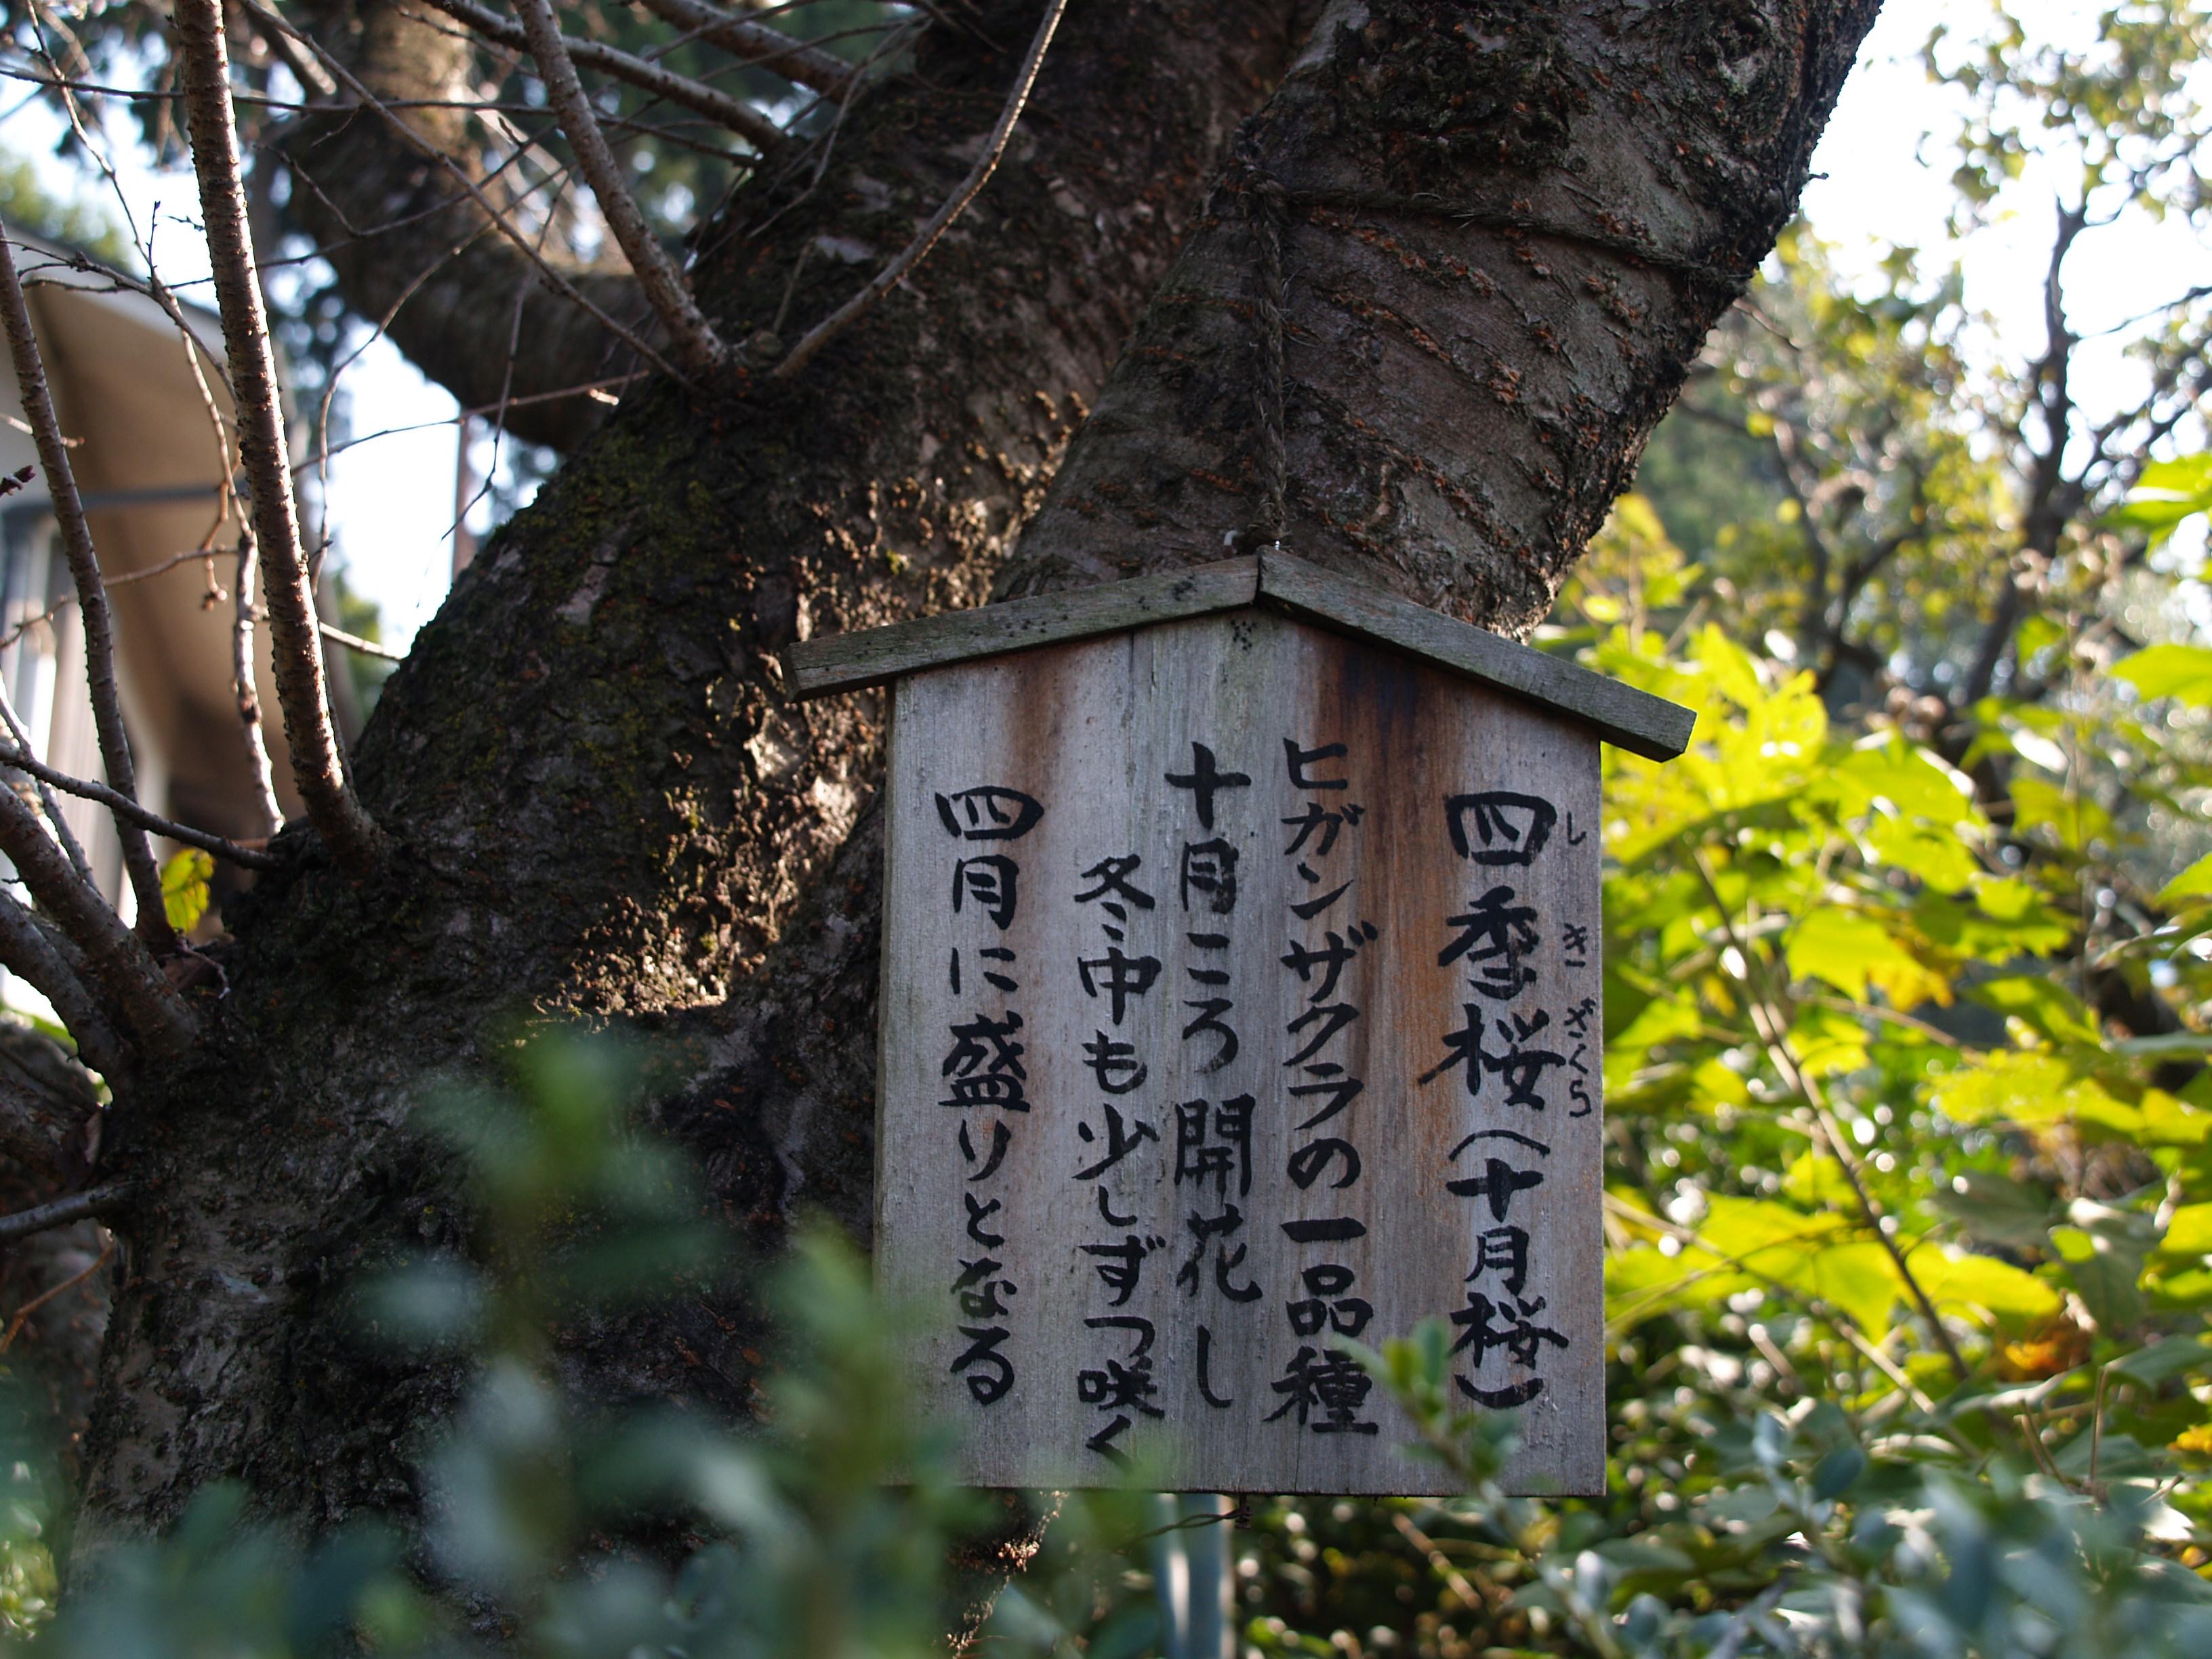 四季桜(十月桜)
しきざくら
ヒガンザクラの一品種
十月ころ開花し
冬中も少しずつ咲く
四月に盛りとなる